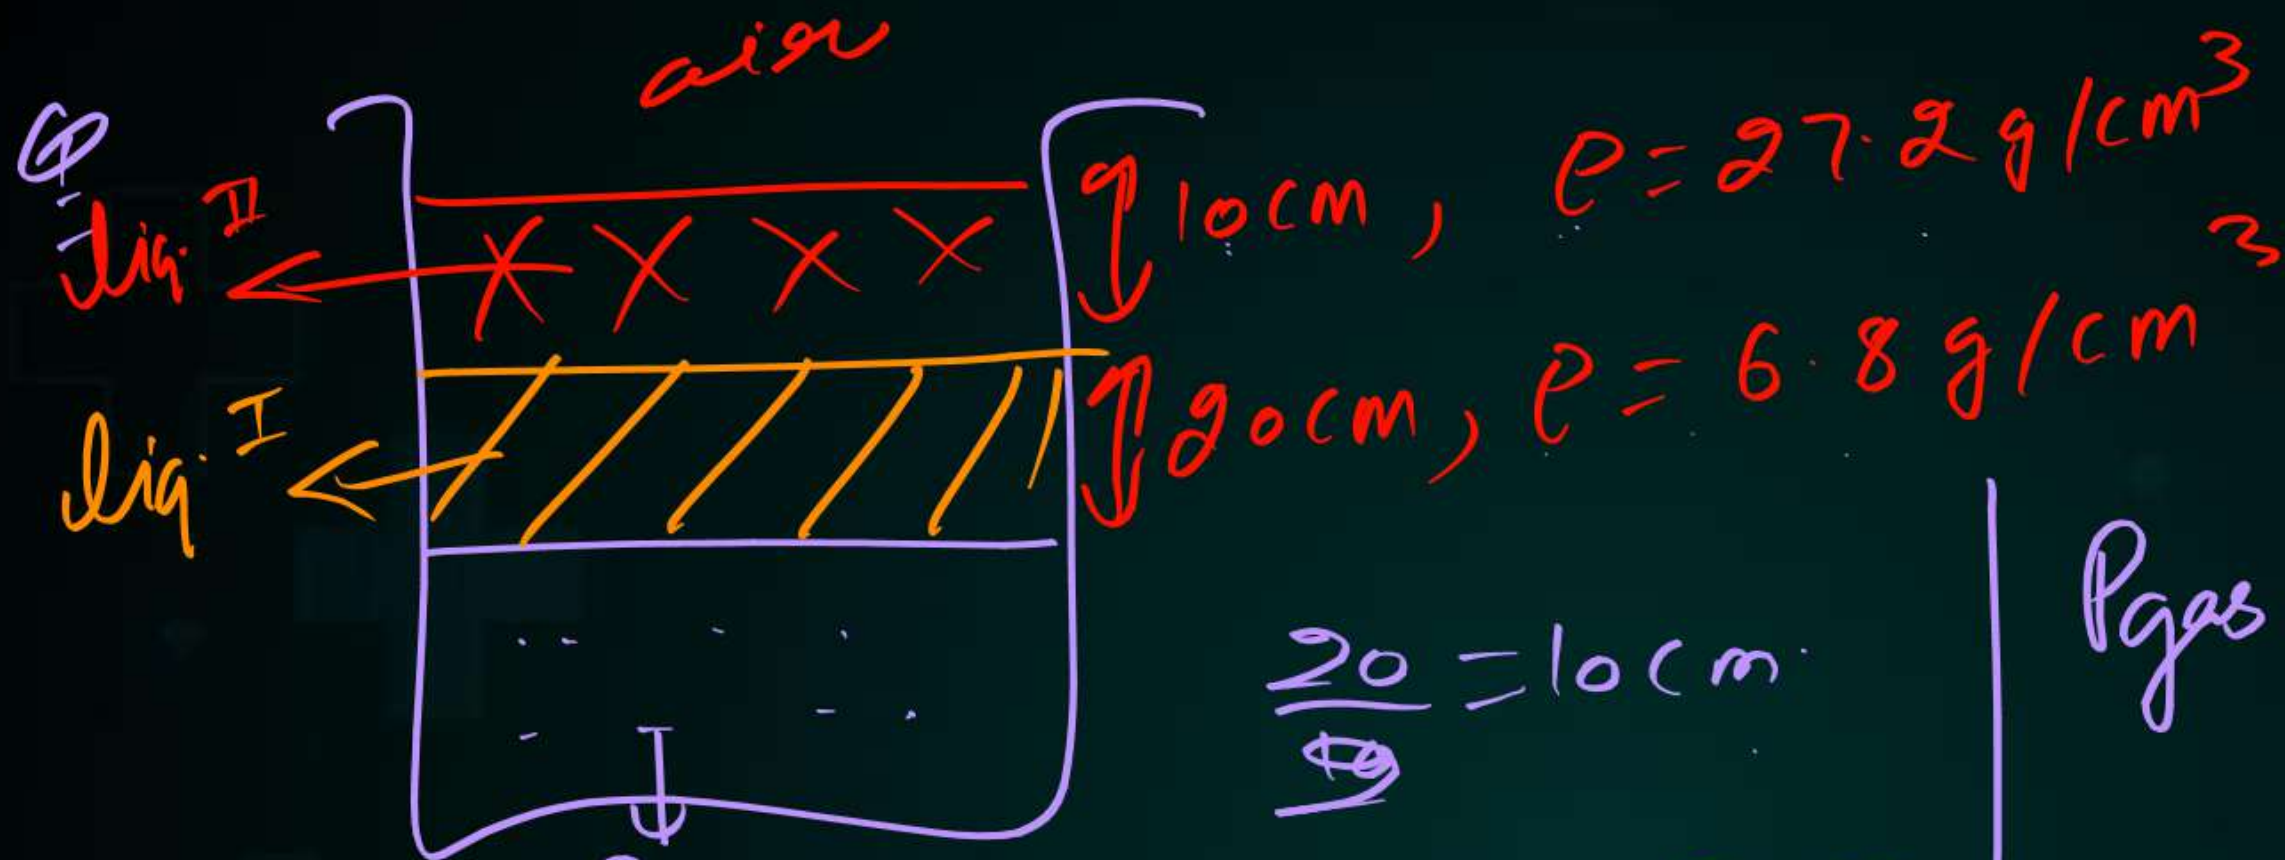 air
Q
liq. II
10 cm, ρ = 27.2 g/cm³
liq. I
20 cm, ρ = 6.8 g/cm³
20 = 10 cm
Pgas